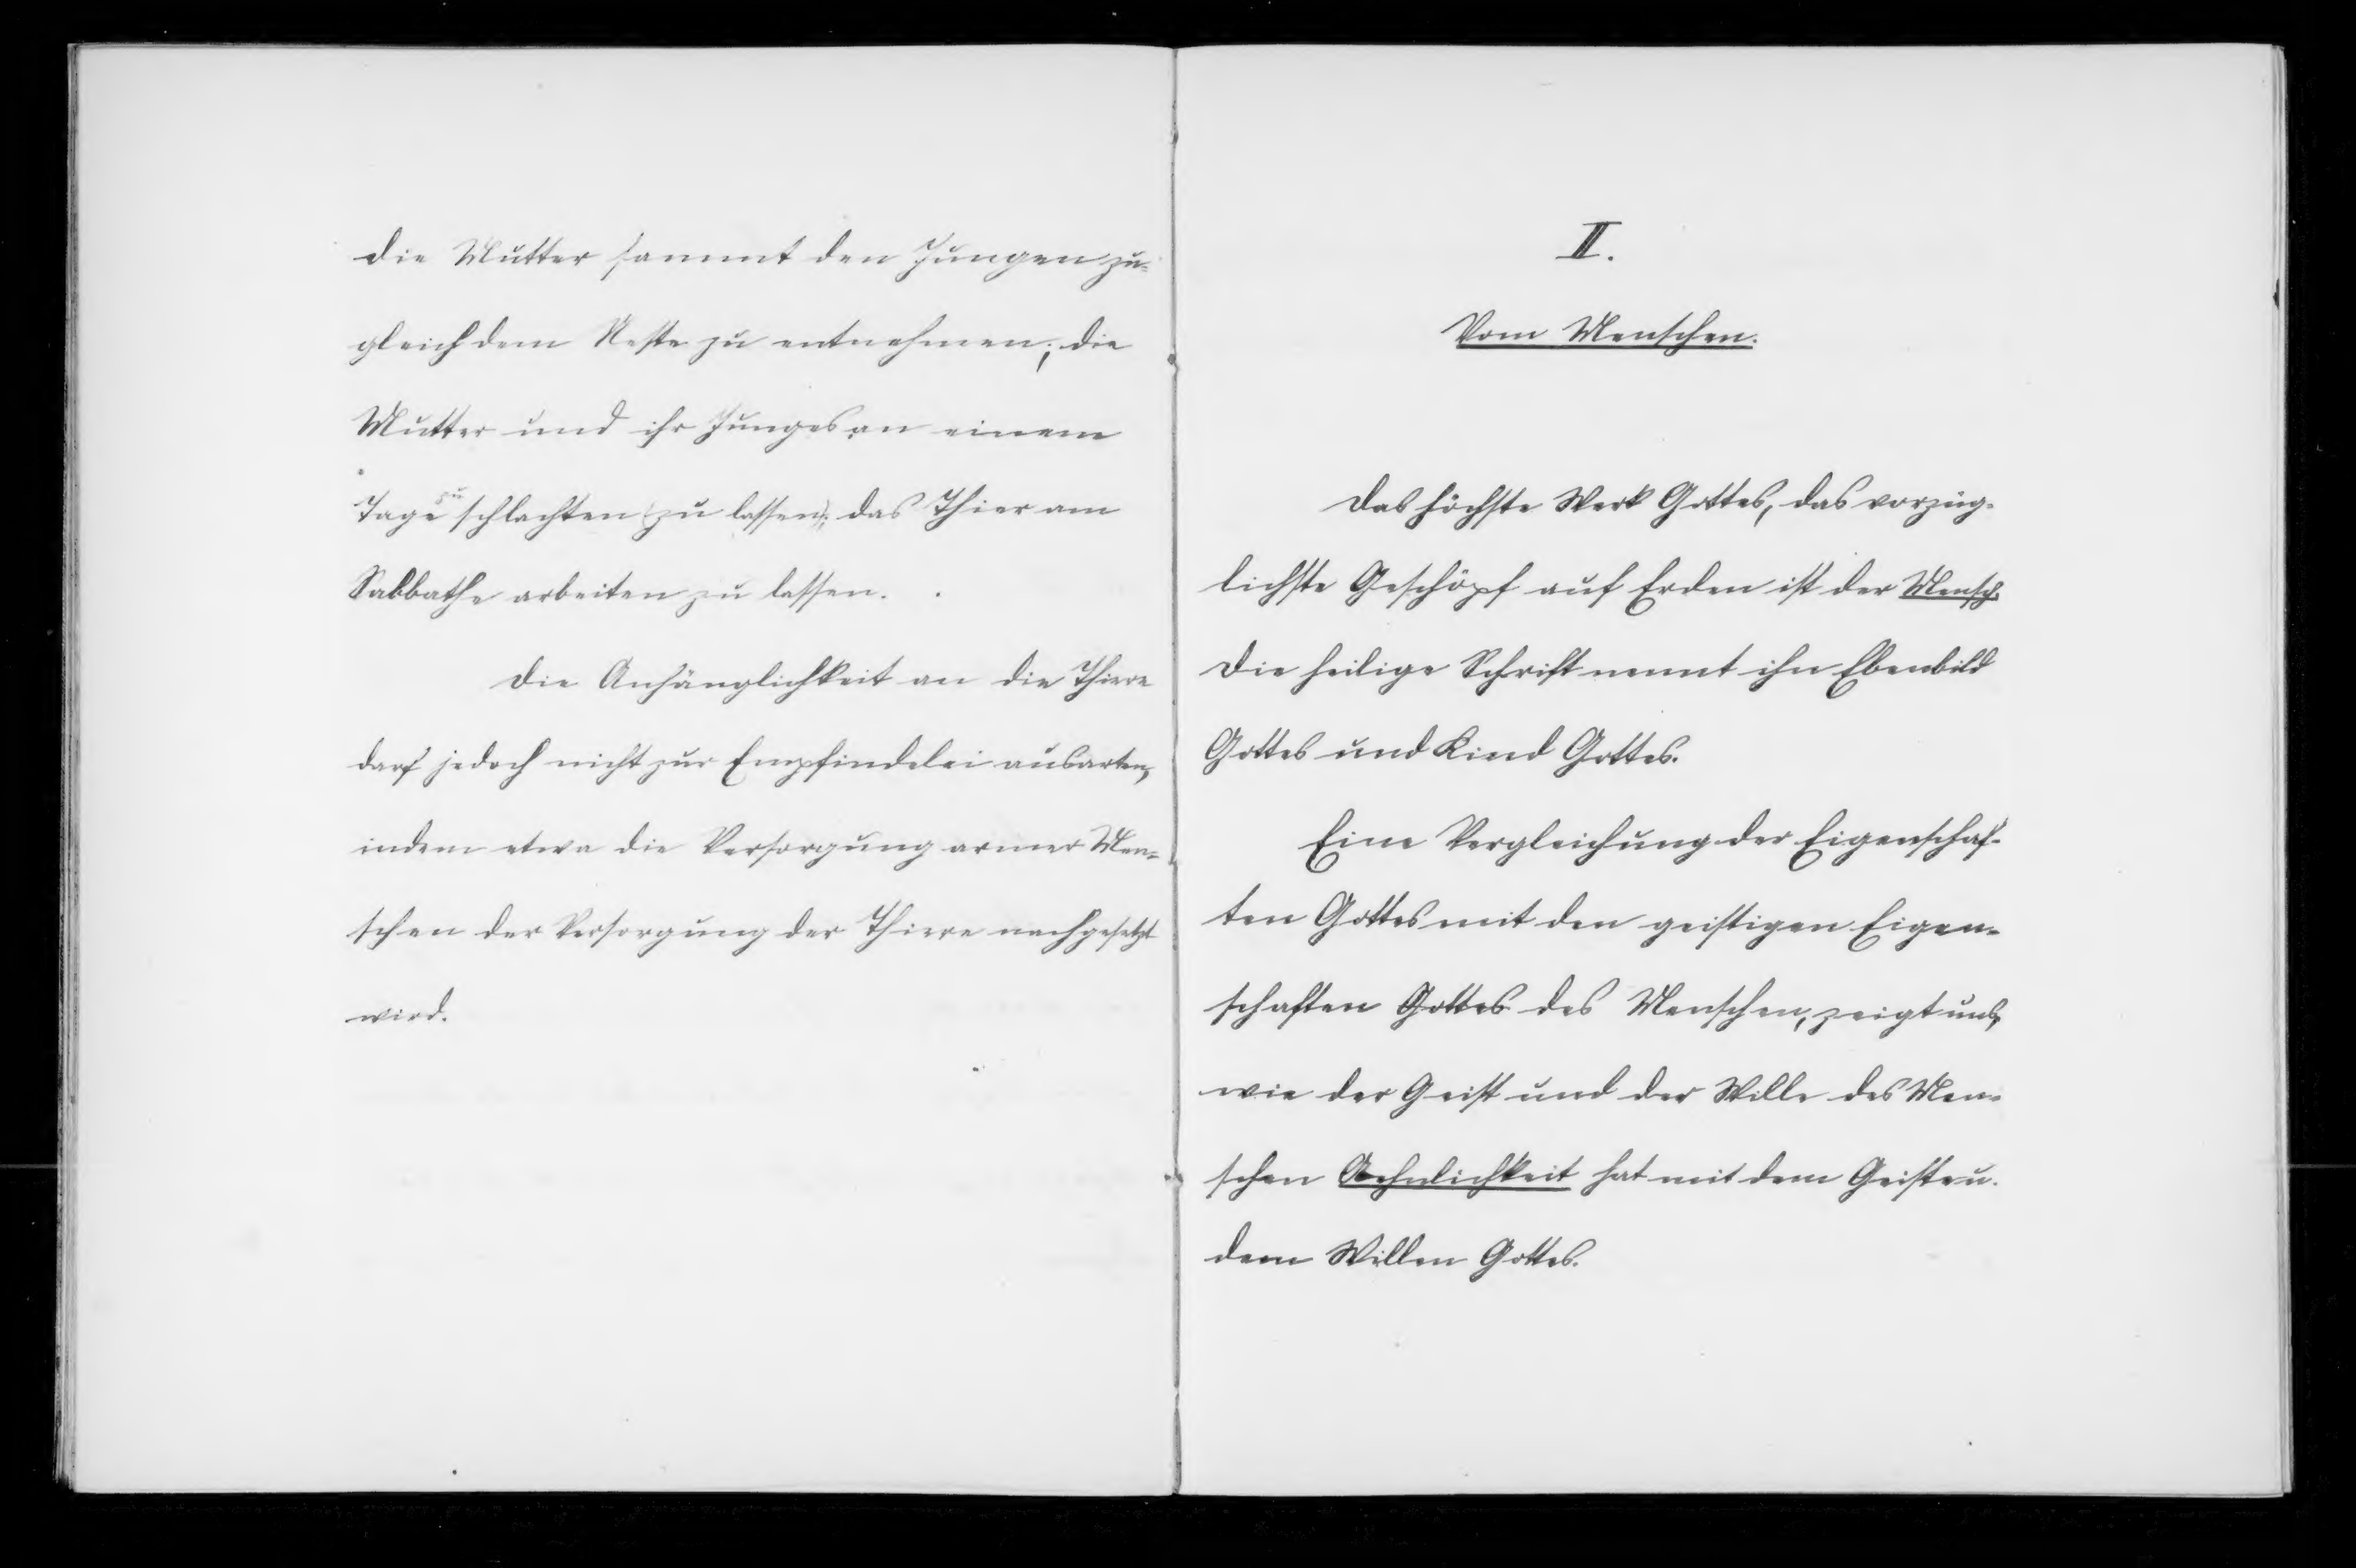 die Mutter sammt den Jungen zu-
gleich dem Neste zu entnehmen; die
Mutter und ihr Junges an einem
Tage zu schlachten (zu lassen); das Thier am
Sabbathe arbeiten zu lassen.
Die Anhänglichkeit an die Thiere
darf jedoch nicht zur Empfindelei ausarten,
indem etwa die Versorgung armer Men-
schen der Versorgung der Thiere nachgesetzt
wird.
II.
Vom Menschen.
Das höchste Werk Gottes, das vorzüg-
lichste Geschöpf auf Erden ist der Mensch.
Die heilige Schrift nennt ihn Ebenbild
Gottes und Kind Gottes.
Eine Vergleichung der Eigenschaf-
ten Gottes mit den geistigen Eigen-
schaften Gottes des Menschen, zeigt uns,
wie der Geist und der Wille des Men-
schen Aehnlichkeit hat mit dem Geiste u.
dem Willen Gottes.